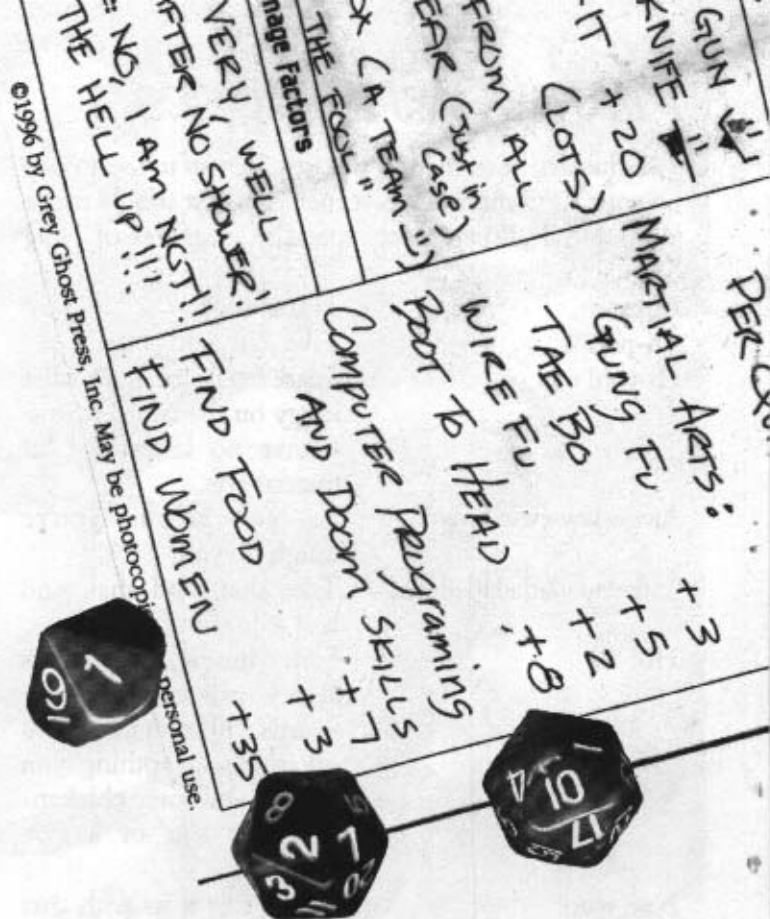 GUN "
KNIFE "
IT +20
(LOTS)
FROM ALL
EAR (just in case)
OX (A TEAM")
THE FOOL"
mage Factors
VERY WELL
AFTER NO SHOWER!
: NO, I AM NOT!!
THE HELL UP!!!
MARTIAL ARTS:
GUNG FU +3
TAE BO +5
WIRE FU +2
BOOT TO HEAD +8
COMPUTER PROGRAMING
AND DOOM SKILLS
FIND FOOD +3
FIND WOMEN +35
©1996 by Grey Ghost Press, Inc. May be photocopi personal use.
19
7
8
2
7
3
20
11
1
4
10
17